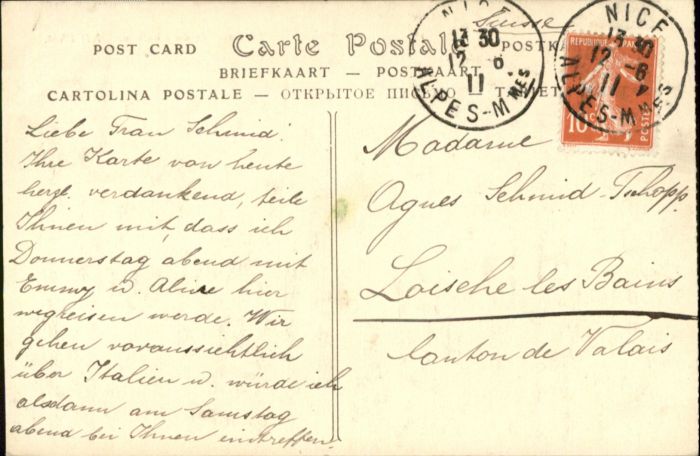 Suisse
POST CARD Carte Postale POSTK
BRIEFKAART — POSTKAART
CARTOLINA POSTALE — ОТКРЫТОЕ ПИСЬМО
NICE
13 30
12 6
11
ALPES-MMES
NICE
13 30
12 6
11
ALPES-MMES
10
POSTES
Liebe Frau Schmid.
Ihre Karte von heute
herzl. verdankend, teile
Ihnen mit, dass ich
Donnerstag abend mit
Emmy u. Aline hier
wegreisen werde. Wir
gehen voraussichtlich
über Italien u. würde ich
alsdann am Samstag
abend bei Ihnen eintreffen.
Madame
Agnes Schmid-Tschopp.
Loische les Bains
Canton de Valais